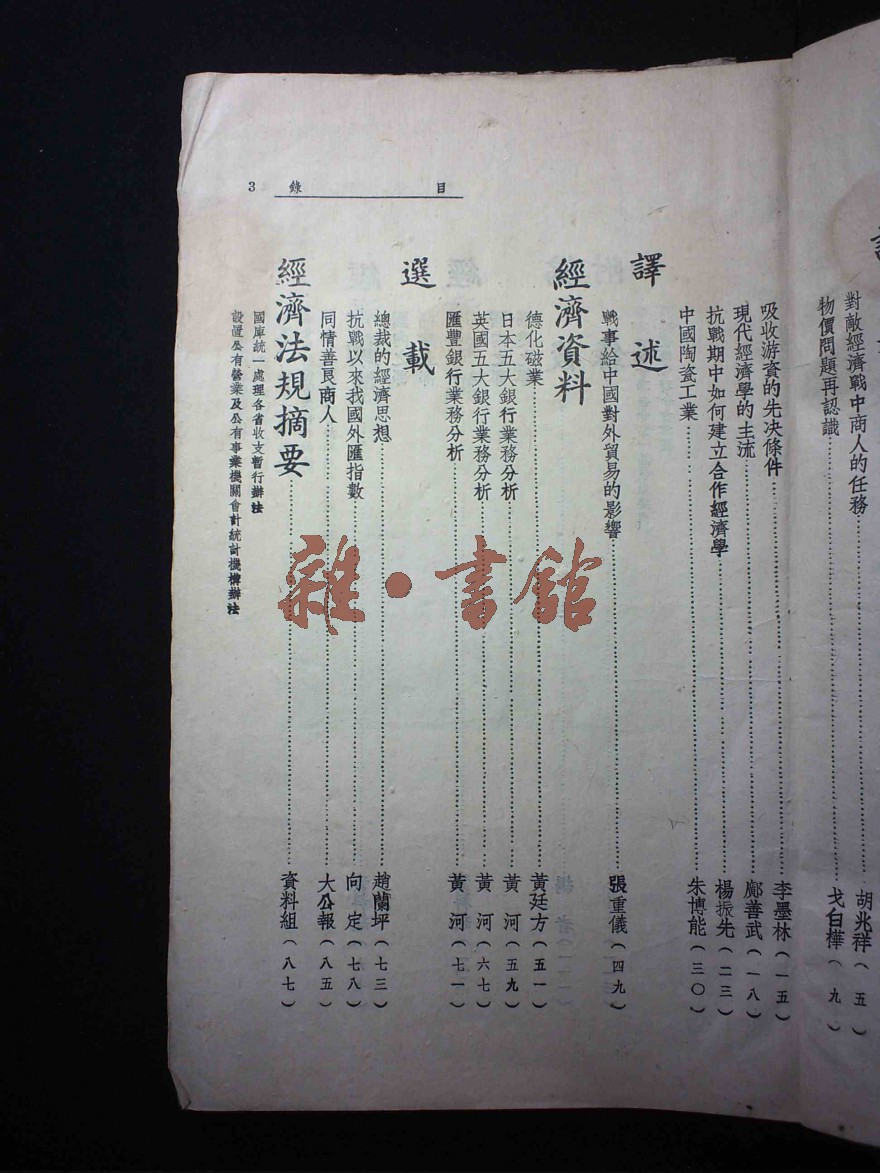 對敵經濟戰中商人的任務……胡兆祥(五)
物價問題再認識……戈白樺(九)
目錄 3
吸收游資的先決條件……李墨林(一五)
現代經濟學的主流……鄺善武(一八)
抗戰期中如何建立合作經濟學……楊振先(二三)
中國陶瓷工業……朱博能(三〇)
譯述
戰事給中國對外貿易的影響……張重儀(四九)
經濟資料
德化磁業……黃廷方(五一)
日本五大銀行業務分析……黃河(五九)
英國五大銀行業務分析……黃河(六七)
匯豐銀行業務分析……黃河(七一)
選載
總裁的經濟思想……趙蘭坪(七三)
抗戰以來我國外匯指數……向定(七八)
同情善良商人……大公報(八五)
經濟法規摘要……資料組(八七)
國庫統一處理各省收支暫行辦法
設置公有營業及公有事業機關會計統計機構辦法
雜·書館